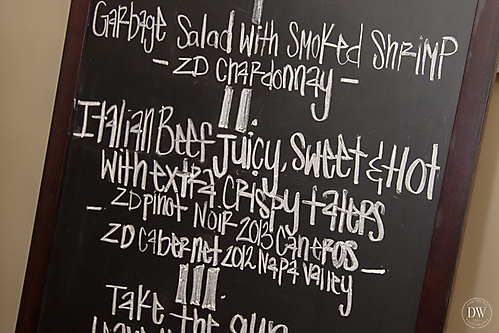 I
Garbage Salad with Smoked Shrimp
- ZD Chardonnay -
II.
Italian Beef Juicy, Sweet & Hot
with extra Crispy taters
- ZD Pinot Noir 2013 Caneros
ZD Cabernet 2012 Napa Valley -
III.
Take the gun
DW